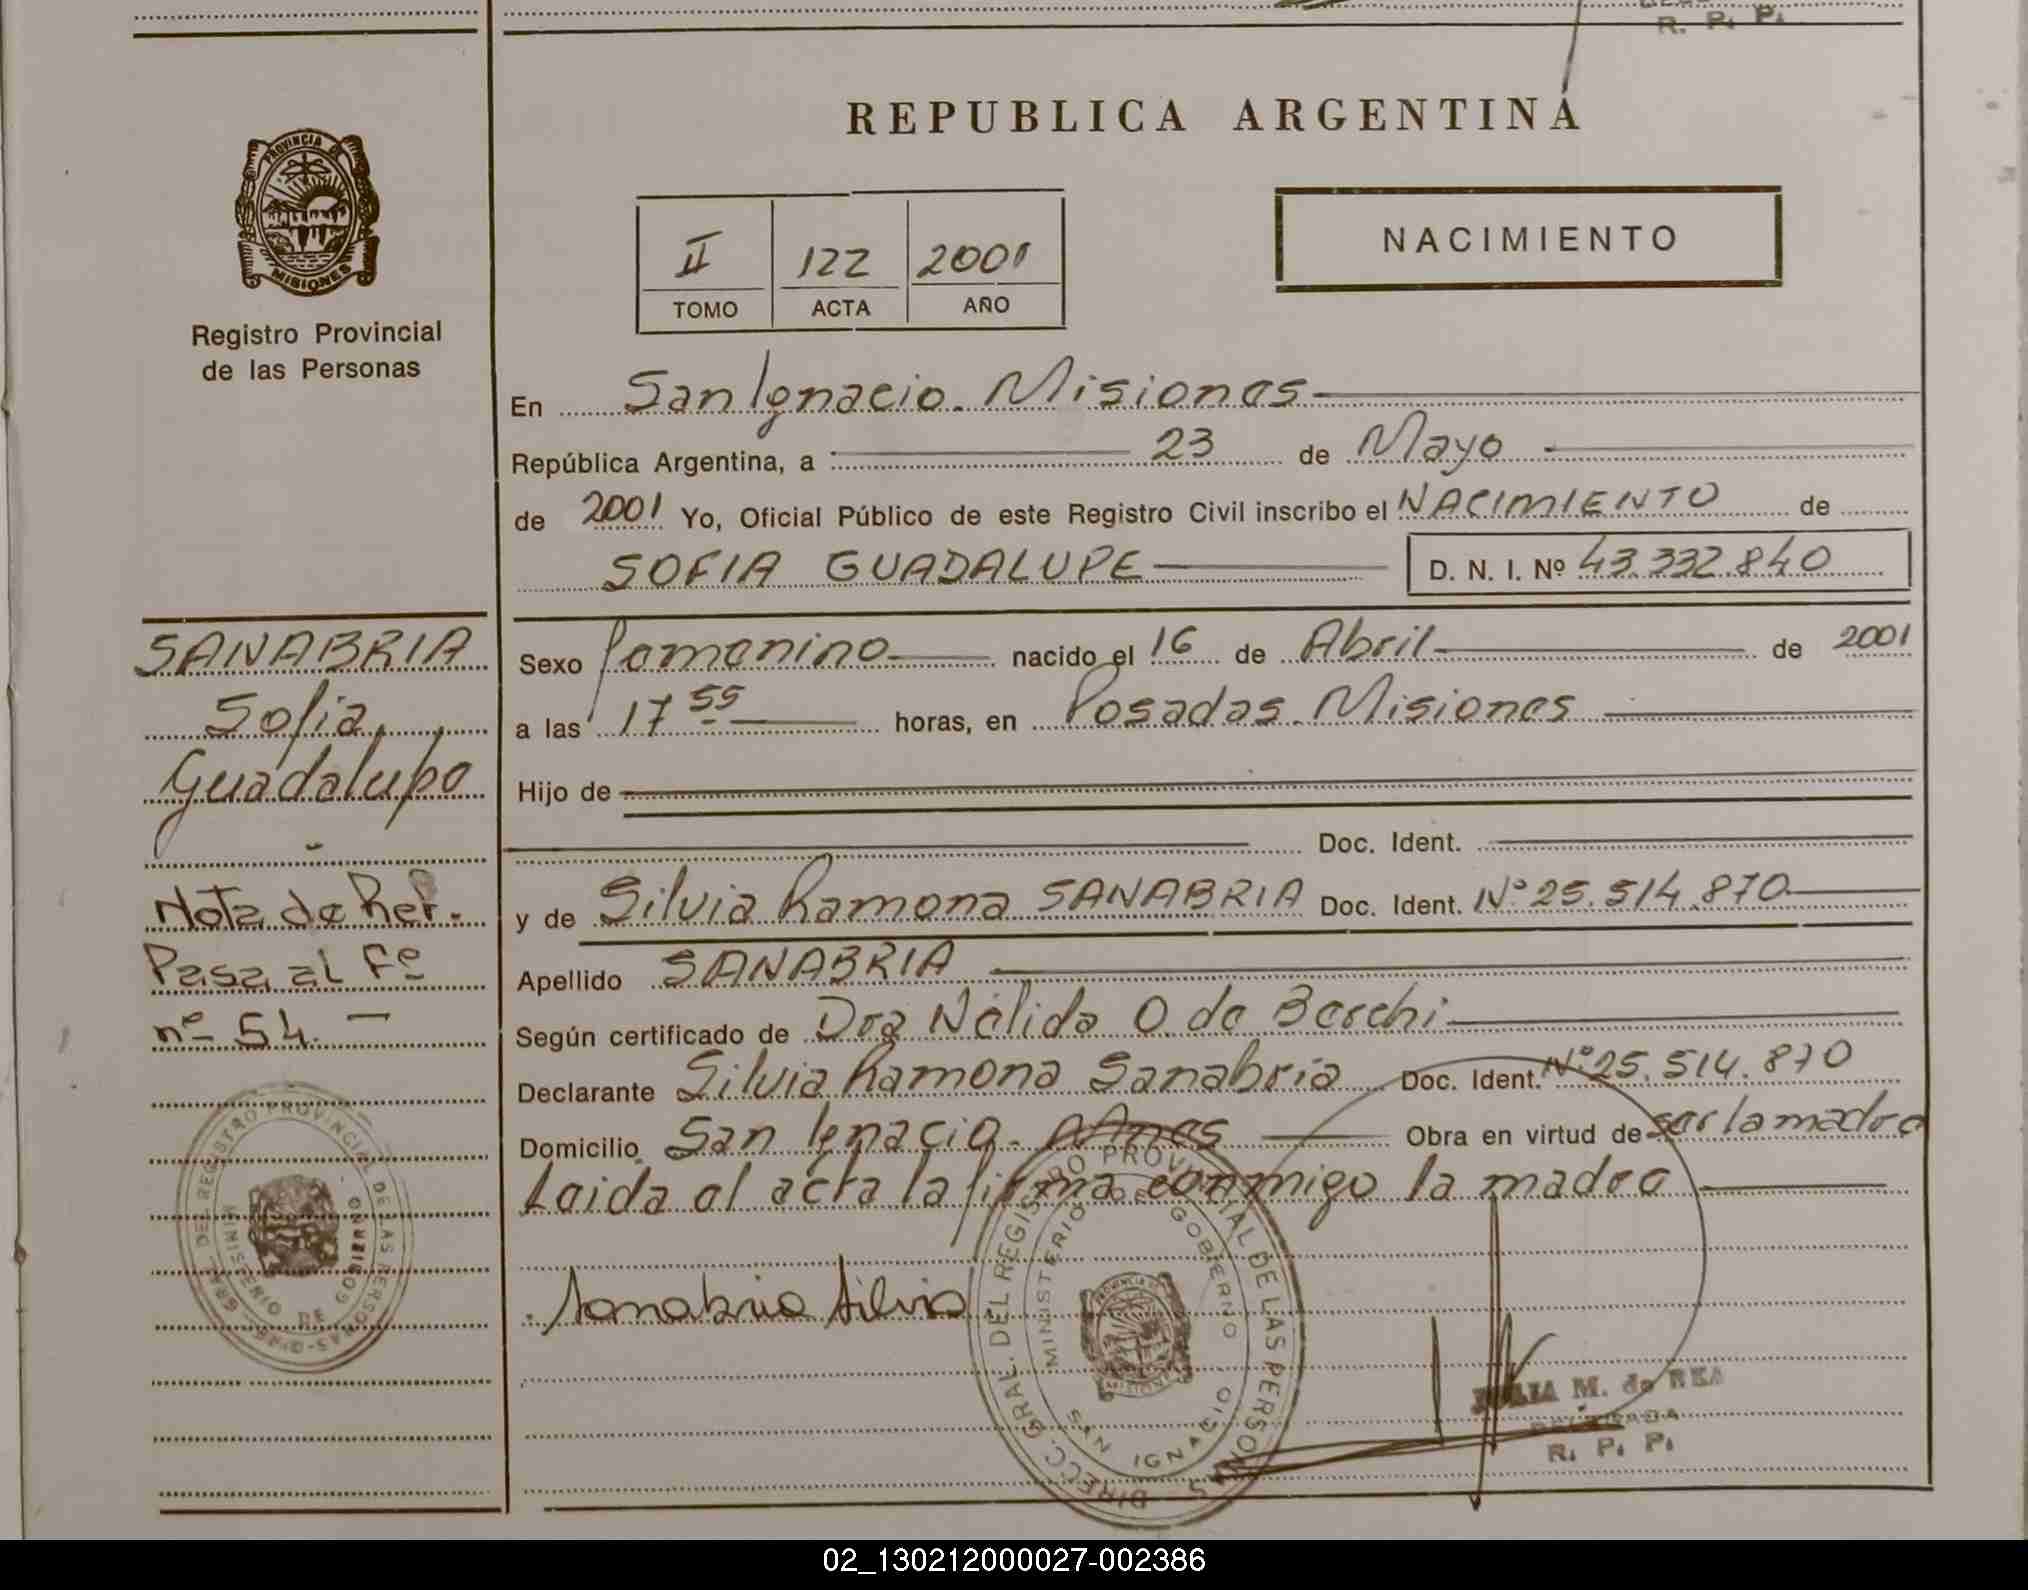 R. P. P.
REPUBLICA ARGENTINA
PROVINCIA DE
MISIONES
Registro Provincial
de las Personas
II 122 2001
TOMO ACTA AÑO
NACIMIENTO
En San Ignacio. Misiones
República Argentina, a 23 de Mayo
de 2001 Yo, Oficial Público de este Registro Civil inscribo el NACIMIENTO de
SOFIA GUADALUPE D. N. I. Nº 43.332.840
Sexo femenino nacido el 16 de Abril de 2001
a las 17 55 horas, en Posadas. Misiones
Hijo de
Doc. Ident.
y de Silvia Ramona SANABRIA Doc. Ident. Nº 25.514.870
Apellido SANABRIA
Según certificado de Dra Nélida O. de Berchi
Declarante Silvia Ramona Sanabria Doc. Ident. Nº 25.514.870
Domicilio San Ignacio. Mnes Obra en virtud de ser la madre
Leida el acta la firma conmigo la madre
Sanabria Silvia
DIRECC. GRAL. DEL REGISTRO PROVINCIAL DE LAS PERSONAS
MINISTERIO DE GOBIERNO
SAN IGNACIO
JULIA M. de REA
DELEGADA
R. P. P.
SANABRIA
Sofia
Guadalupe
Nota de Ref.
Pasa al Fº
nº 54.
GRAL. DEL REGISTRO PROVINCIAL DE LAS PERSONAS
MINISTERIO DE GOBIERNO
02_130212000027-002386